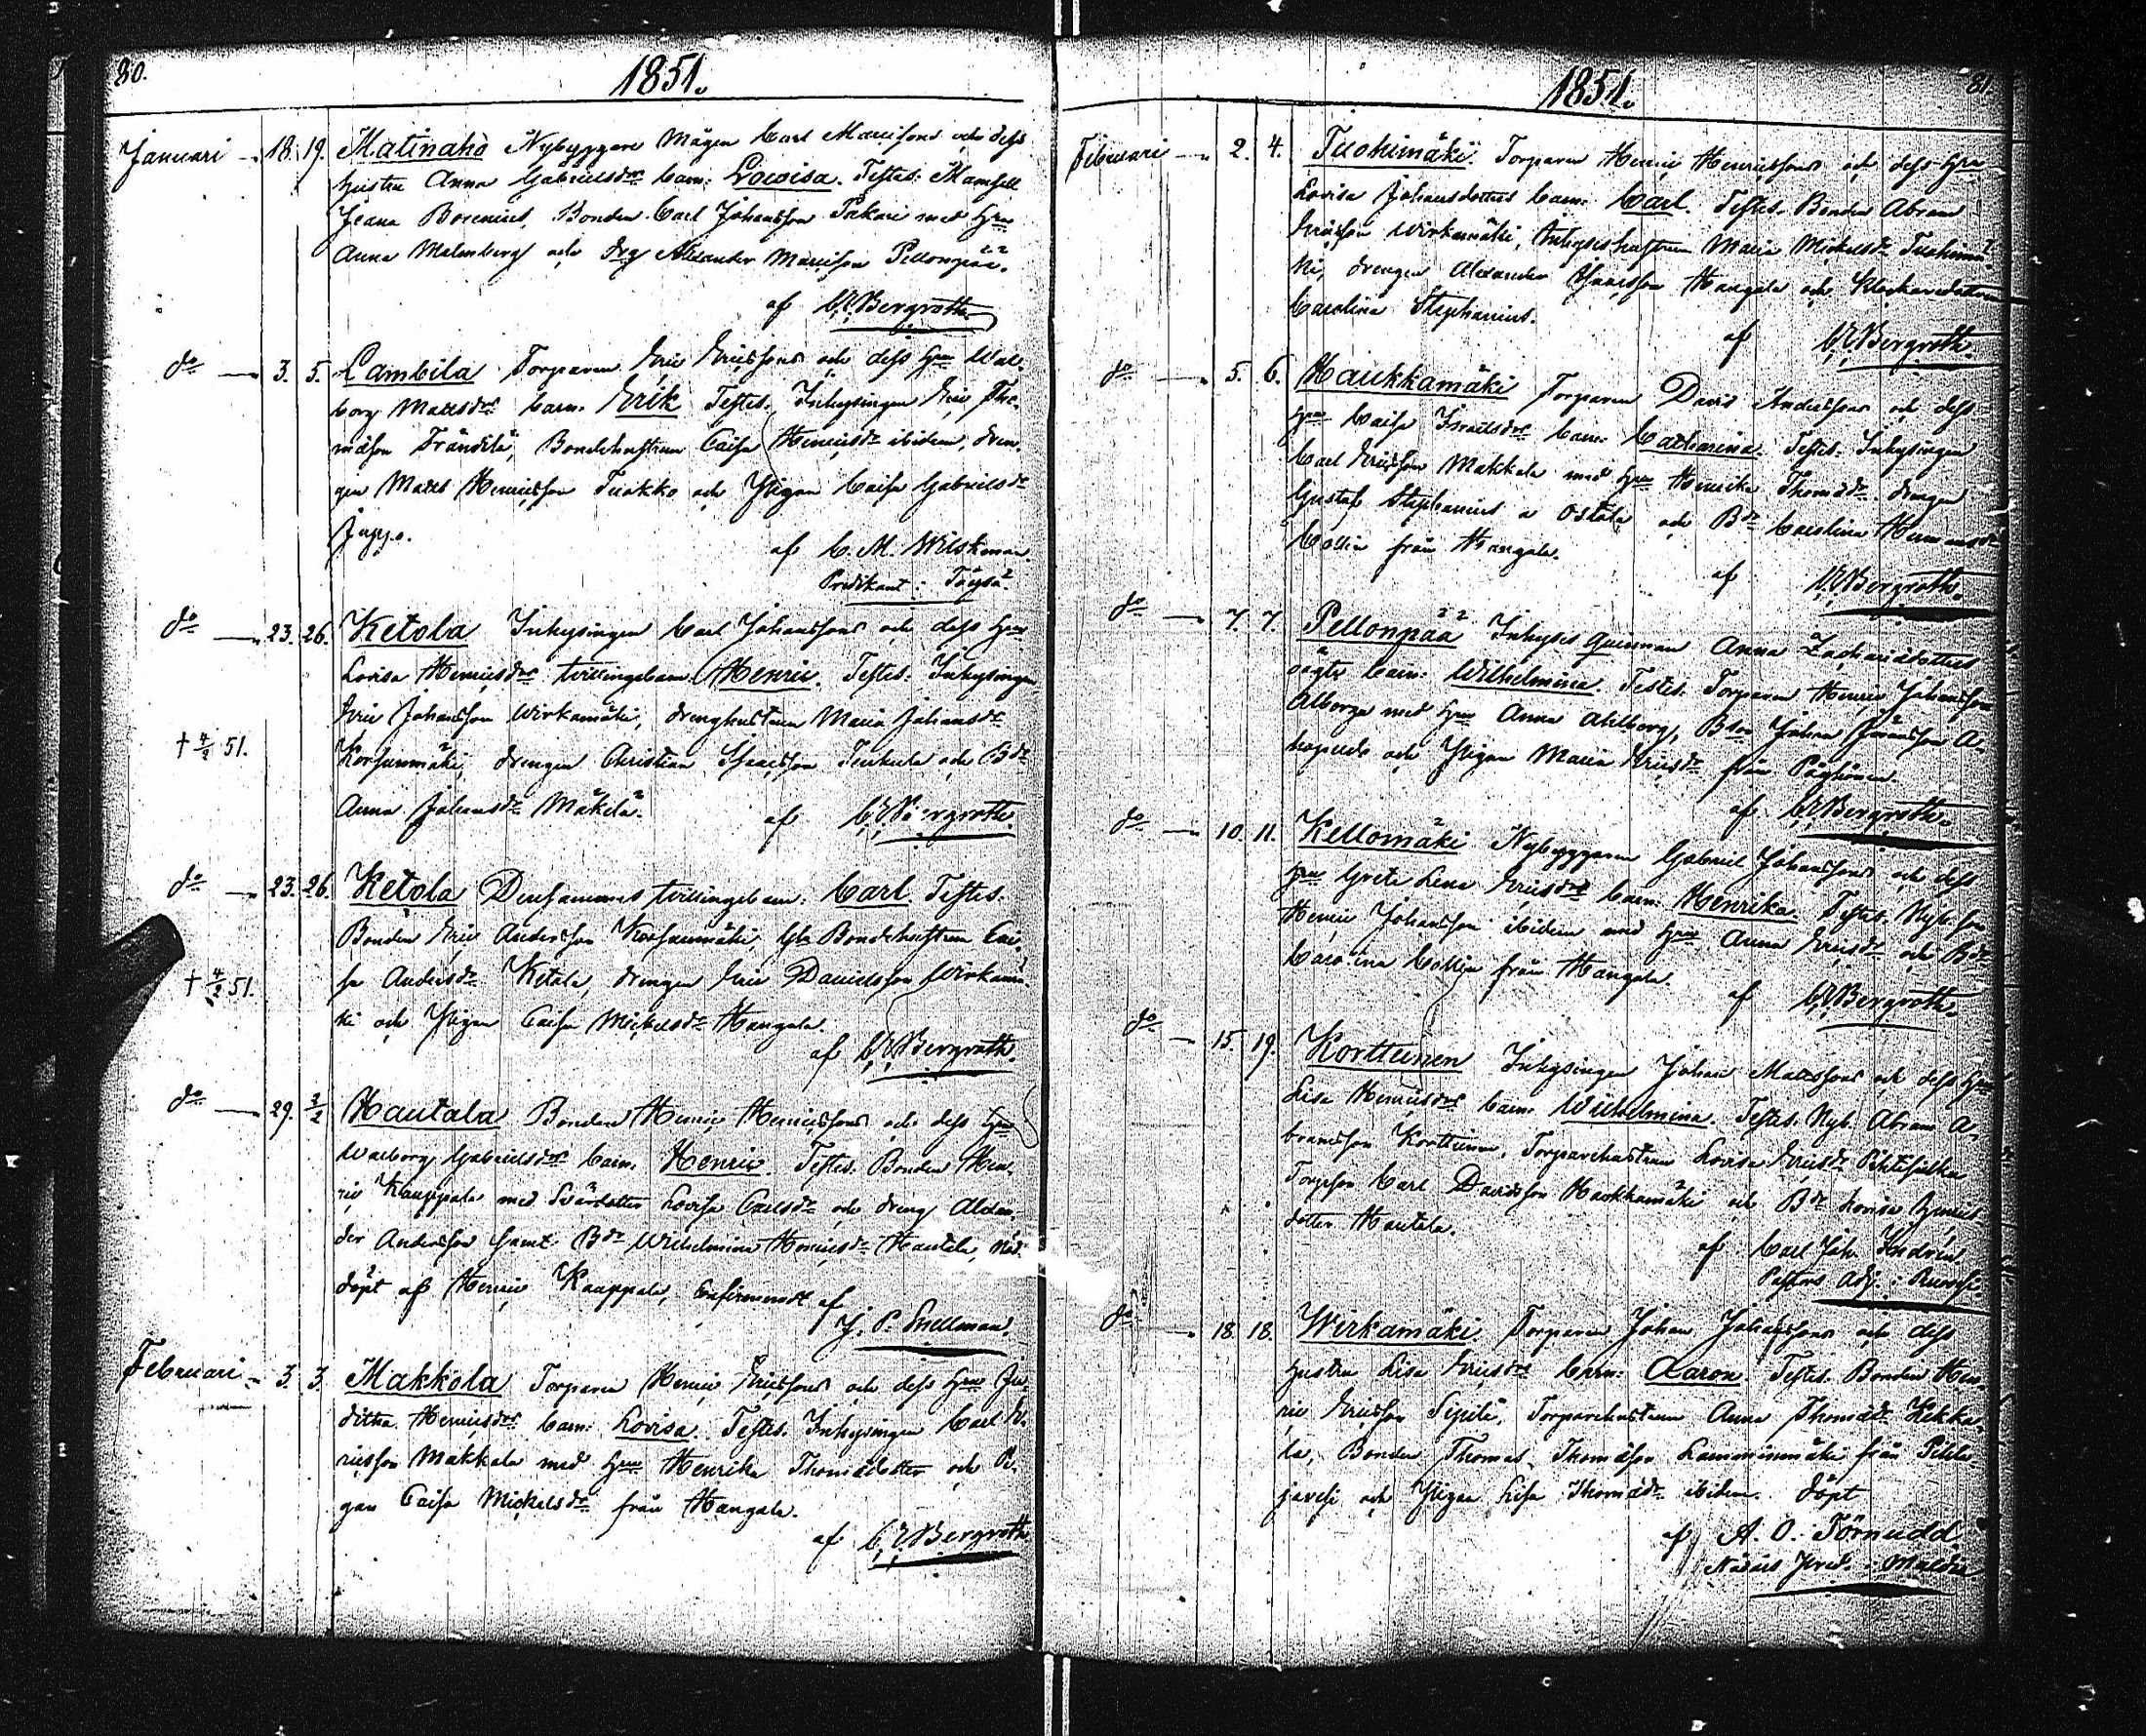 80.
1851.
Januari 18. 19. Matinaho Nybyggare Mågen Carl Mattssons och dess
hustru Anna Gabrielsdrs barn: Lovisa. Testes: Mamsell
Jeana Borenius, Bonden Carl Johansson Pakari med Hru
Anna Malmberg och Drg Alexander Mattsson Pellonpää.
af C.E. Bergroth
do 3. 5. Lambila Torparen Eric Ericssons och dess Hru Wal-
borg Mattsdrs barn. Erik Testes. Inhysingen Eric Tho-
mäson Trändilä, Bondehustrun Caisa Henricsdr ibidem, dren-
gen Matts Henricsson Tuokko och Pigan Caisa Gabrielsdr
Juppo.
af C. M. Wilskman
Predikant i Töysä
do 23. 26. Ketola Inhysingen Carl Johanssons och dess Hrus
Lovisa Henricsdrs tvillingebarn Henric. Testes: Inhysingen
Eric Johansson Wirkamäki, drenghustrun Maria Johansdr
† 4/2 51. Korsunmäki, drengen Christian Isaacsson Teukula och Bdr
Anna Johansdr Mäkelä.
af C.E. Bergroth.
do 23. 26. Ketola Densammes tvillingebarn: Carl. Testes.
Bonden Eric Andersson Korsunmäki, Gla Bondehustrun Cai-
† 4/2 51. sa Andersdr Ketola, drengen Eric Danielsson Wirkamä-
ki och Pigan Caisa Mickelsdr Hangala.
af C.E. Bergroth.
do 29. 2/2 Hautala Bonden Henric Henricssons och dess Hru
Walborg Gabrielsdrs barn. Henric Testes. Bonden Hen-
ric Kauppala med Svärdotter Lovisa Carlsdr och dreng Alexan-
der Andersson samt Bdr Wilhelmina Henricsdr Hautala, Nöd-
döpt af Henric Kauppala, Confirmeradt af
J. P. Snellman.
Februari 3. 3. Makkola Torparen Henric Ericssons och dess Hru Ju-
ditha Henricsdrs barn: Lovisa. Testes. Inhysingen Carl E-
ricsson Makkola med Hru Henrika Thomädotter och Pi-
gan Caisa Mickelsdr från Hangala.
af C.E. Bergroth
81.
1851.
Februari 2. 4. Tuohimäki. Torparen Henric Henricssons och dess Hru
Lovisa Johansdotters barn: Carl. Testes. Bonden Abram
Ericsson Wirkamäki, Inhyseshustrun Maria Mickelsdr Tuohimä-
ki, drengen Alexander Isaacsson Hangala och Klockaredottren
Carolina Stephanius.
af C.E. Bergroth.
do 5. 6. Haukkamäki Torparen David Anderssons och dess
Hru Caisa Israelsdrs barn: Catharina. Testes. Inhysingen
Carl Ericsson Makkola med Hru Henrika Thomädr drengen
Gustaf Stephanius a Ostola och Bdr Carolina Hermansdr
Collin från Hangala.
af C.E. Bergroth.
do 7. 7. Pellonpää Inhyses quinnan Anna Zachariädotters
oägta barn: Wilhelmina. Testes. Torparen Henric Johansson
Alborga med Hru Anna Ahlborg, Bson Johan Jöransson A-
och Pigan Maria Ericsdr från Pöyhönen.
af C.E. Bergroth.
do 10. 11. Kellomäki Nybyggaren Gabriel Johanssons och dess
Hru Greta Lena Ericsdrs barn: Henrika. Testes. Nyb. son
Henric Johansson ibidem med Hru Anna Ericsdr och Bdr
Carolina Collin från Hangala.
af C.E. Bergroth.
do 15. 19. Kortteinen Inhysingen Johan Mattssons och dess Hru
Lisa Henricsdrs barn: Wilhelmina. Testes. Nyb. Abram A-
bramsson Kortteinen, Torparehustrun Lovisa Ericsdr
Torpson Carl Davidsson Haukkamäki och Bdr Lovisa Henrics-
dotter Hautala.
af Carl Joh.
Pastors Adj. i Ruovesi
do 18. 18. Wirkamäki. Torparen Johan Johanssons och dess
hustru Lisa Ericsdrs barn: Aaron. Testes. Bonden Hen-
ric Ericsson Sipilä, Torparehustrun Anna Thomädr Kekko-
la, Bonden Thomas Thomäson Lamminmäki från Pihla-
javesi och Pigan Lisa Thomädr ibidem. döpt
af A. O. Törnudd
Nådårs Pred. i Multia